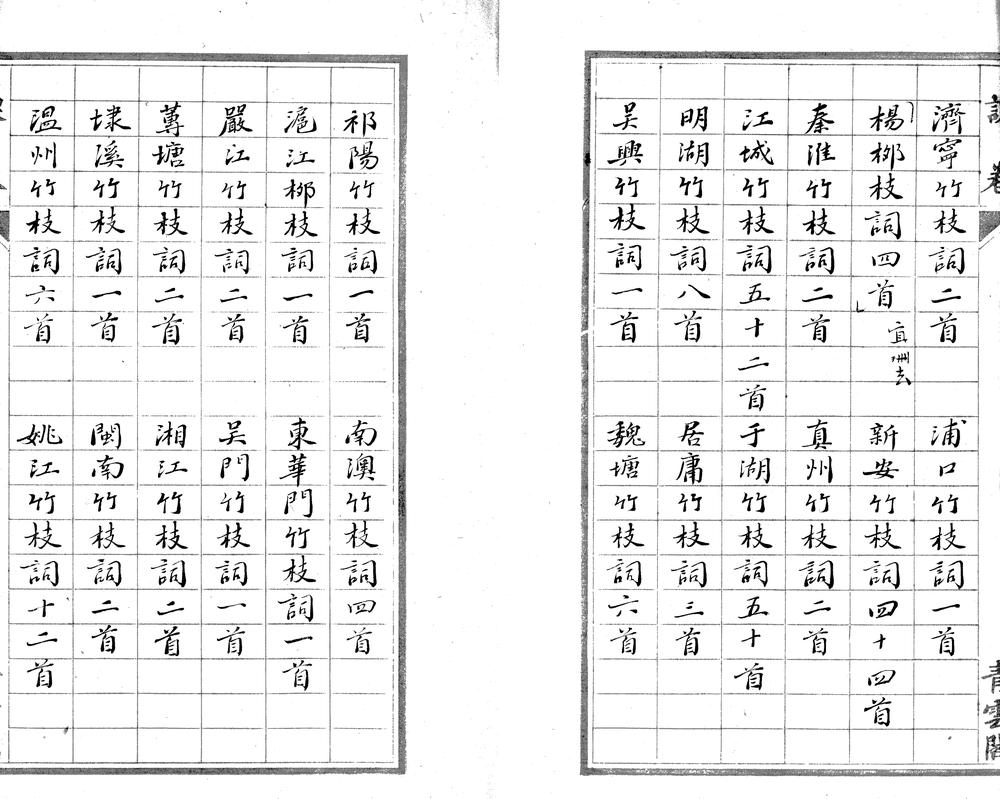 卷 青雲閣
濟寧竹枝詞二首 浦口竹枝詞一首
楊柳枝詞四首 宜刪去 新安竹枝詞四十四首
秦淮竹枝詞二首 真州竹枝詞二首
江城竹枝詞五十二首 于湖竹枝詞五十首
明湖竹枝詞八首 居庸竹枝詞三首
吳興竹枝詞一首 魏塘竹枝詞六首
祁陽竹枝詞一首 南澳竹枝詞四首
滬江柳枝詞一首 東華門竹枝詞一首
嚴江竹枝詞二首 吳門竹枝詞一首
蓴塘竹枝詞二首 湘江竹枝詞二首
埭溪竹枝詞一首 閩南竹枝詞二首
溫州竹枝詞六首 姚江竹枝詞十二首